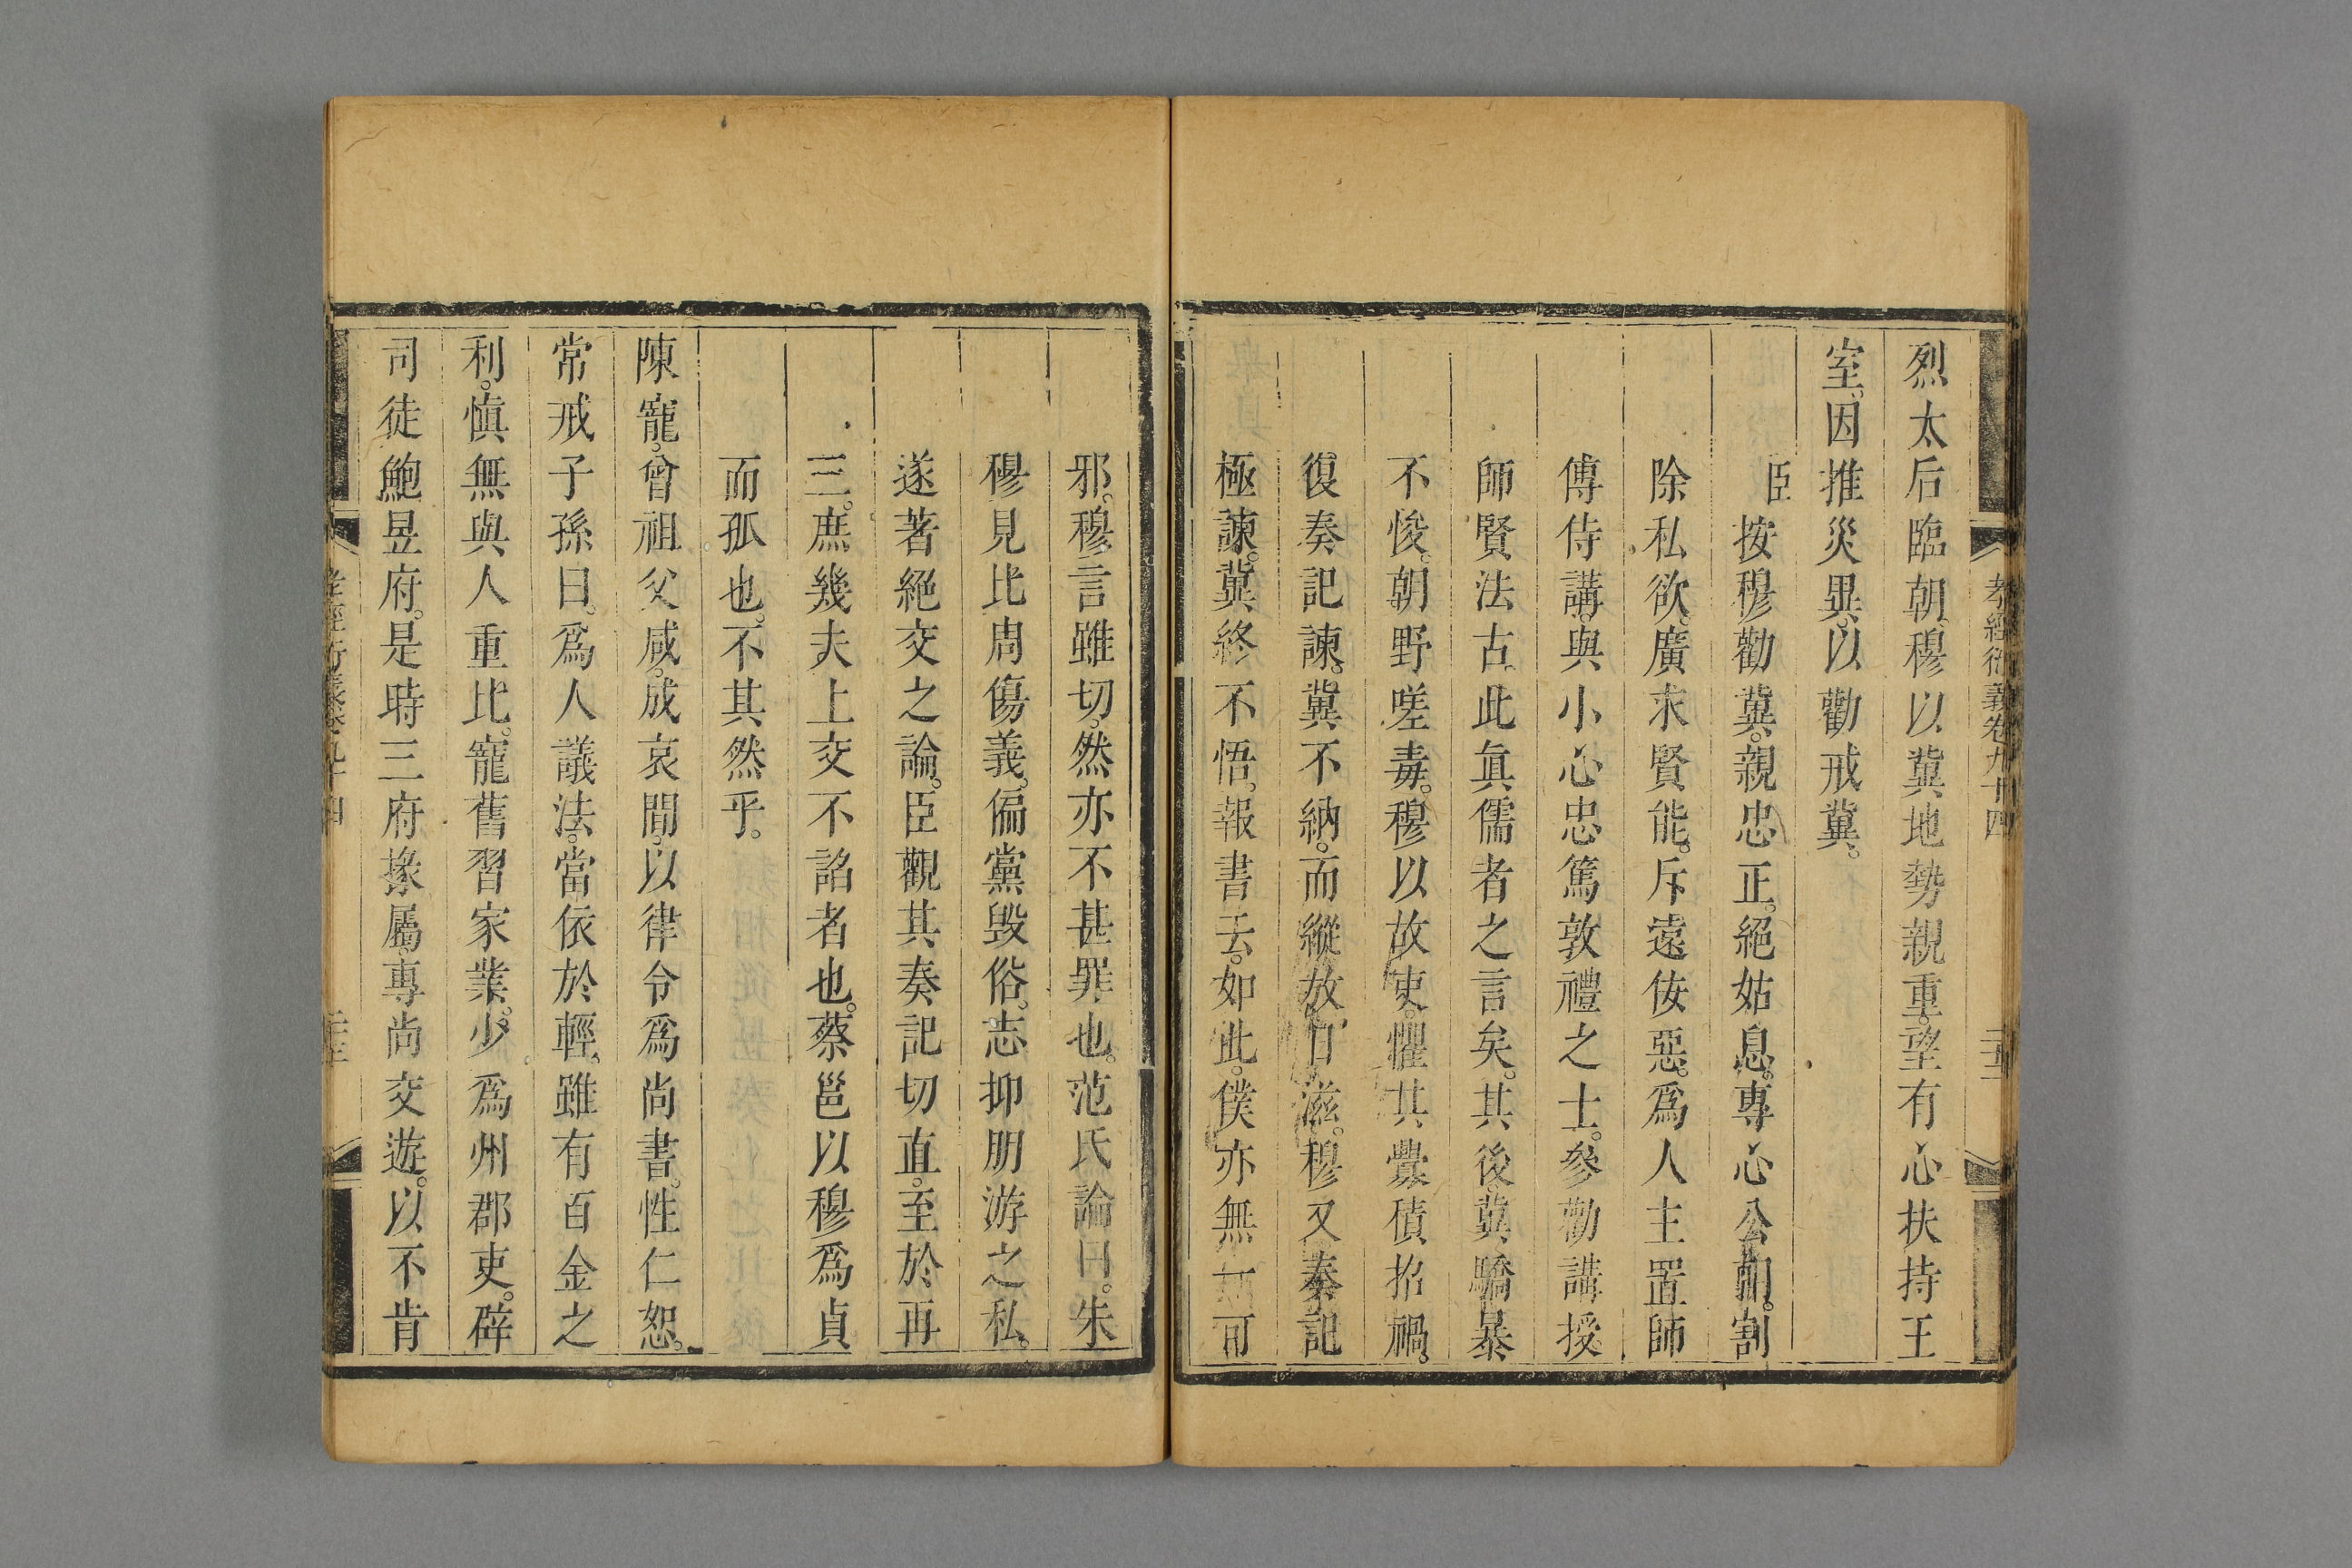 孝經衍義卷九十四
烈太后臨朝。穆以冀地勢親重。望有心扶持王
室。因推災異。以勸戒冀。
臣按穆勸冀。親忠正。絕姑息。專心公朝。割
除私欲。廣求賢能。斥遠佞惡。爲人主置師
傅侍講。與小心忠篤敦禮之士。參勸講授。
師賢法古。此眞儒者之言矣。其後。冀驕暴
不悛。朝野嗟毒。穆以故吏。懼其釁積招禍。
復奏記諫。冀不納。而縱放日滋。穆又奏記
極諫。冀終不悟。報書云。如此。僕亦無一可
邪。穆言雖切。然亦不甚罪也。范氏論曰。朱
穆見比周傷義。偏黨毁俗。志抑朋游之私。
遂著絕交之論。臣觀其奏記切直。至於再
三。庶幾夫上交不諂者也。蔡邕以穆爲貞
而孤也。不其然乎。
陳寵。曾祖父咸。成哀間。以律令爲尚書。性仁恕。
常戒子孫曰。爲人議法。當依於輕。雖有百金之
利。慎無與人重比。寵舊習家業。少爲州郡吏。辟
司徒鮑昱府。是時三府掾屬。專尚交遊。以不肯